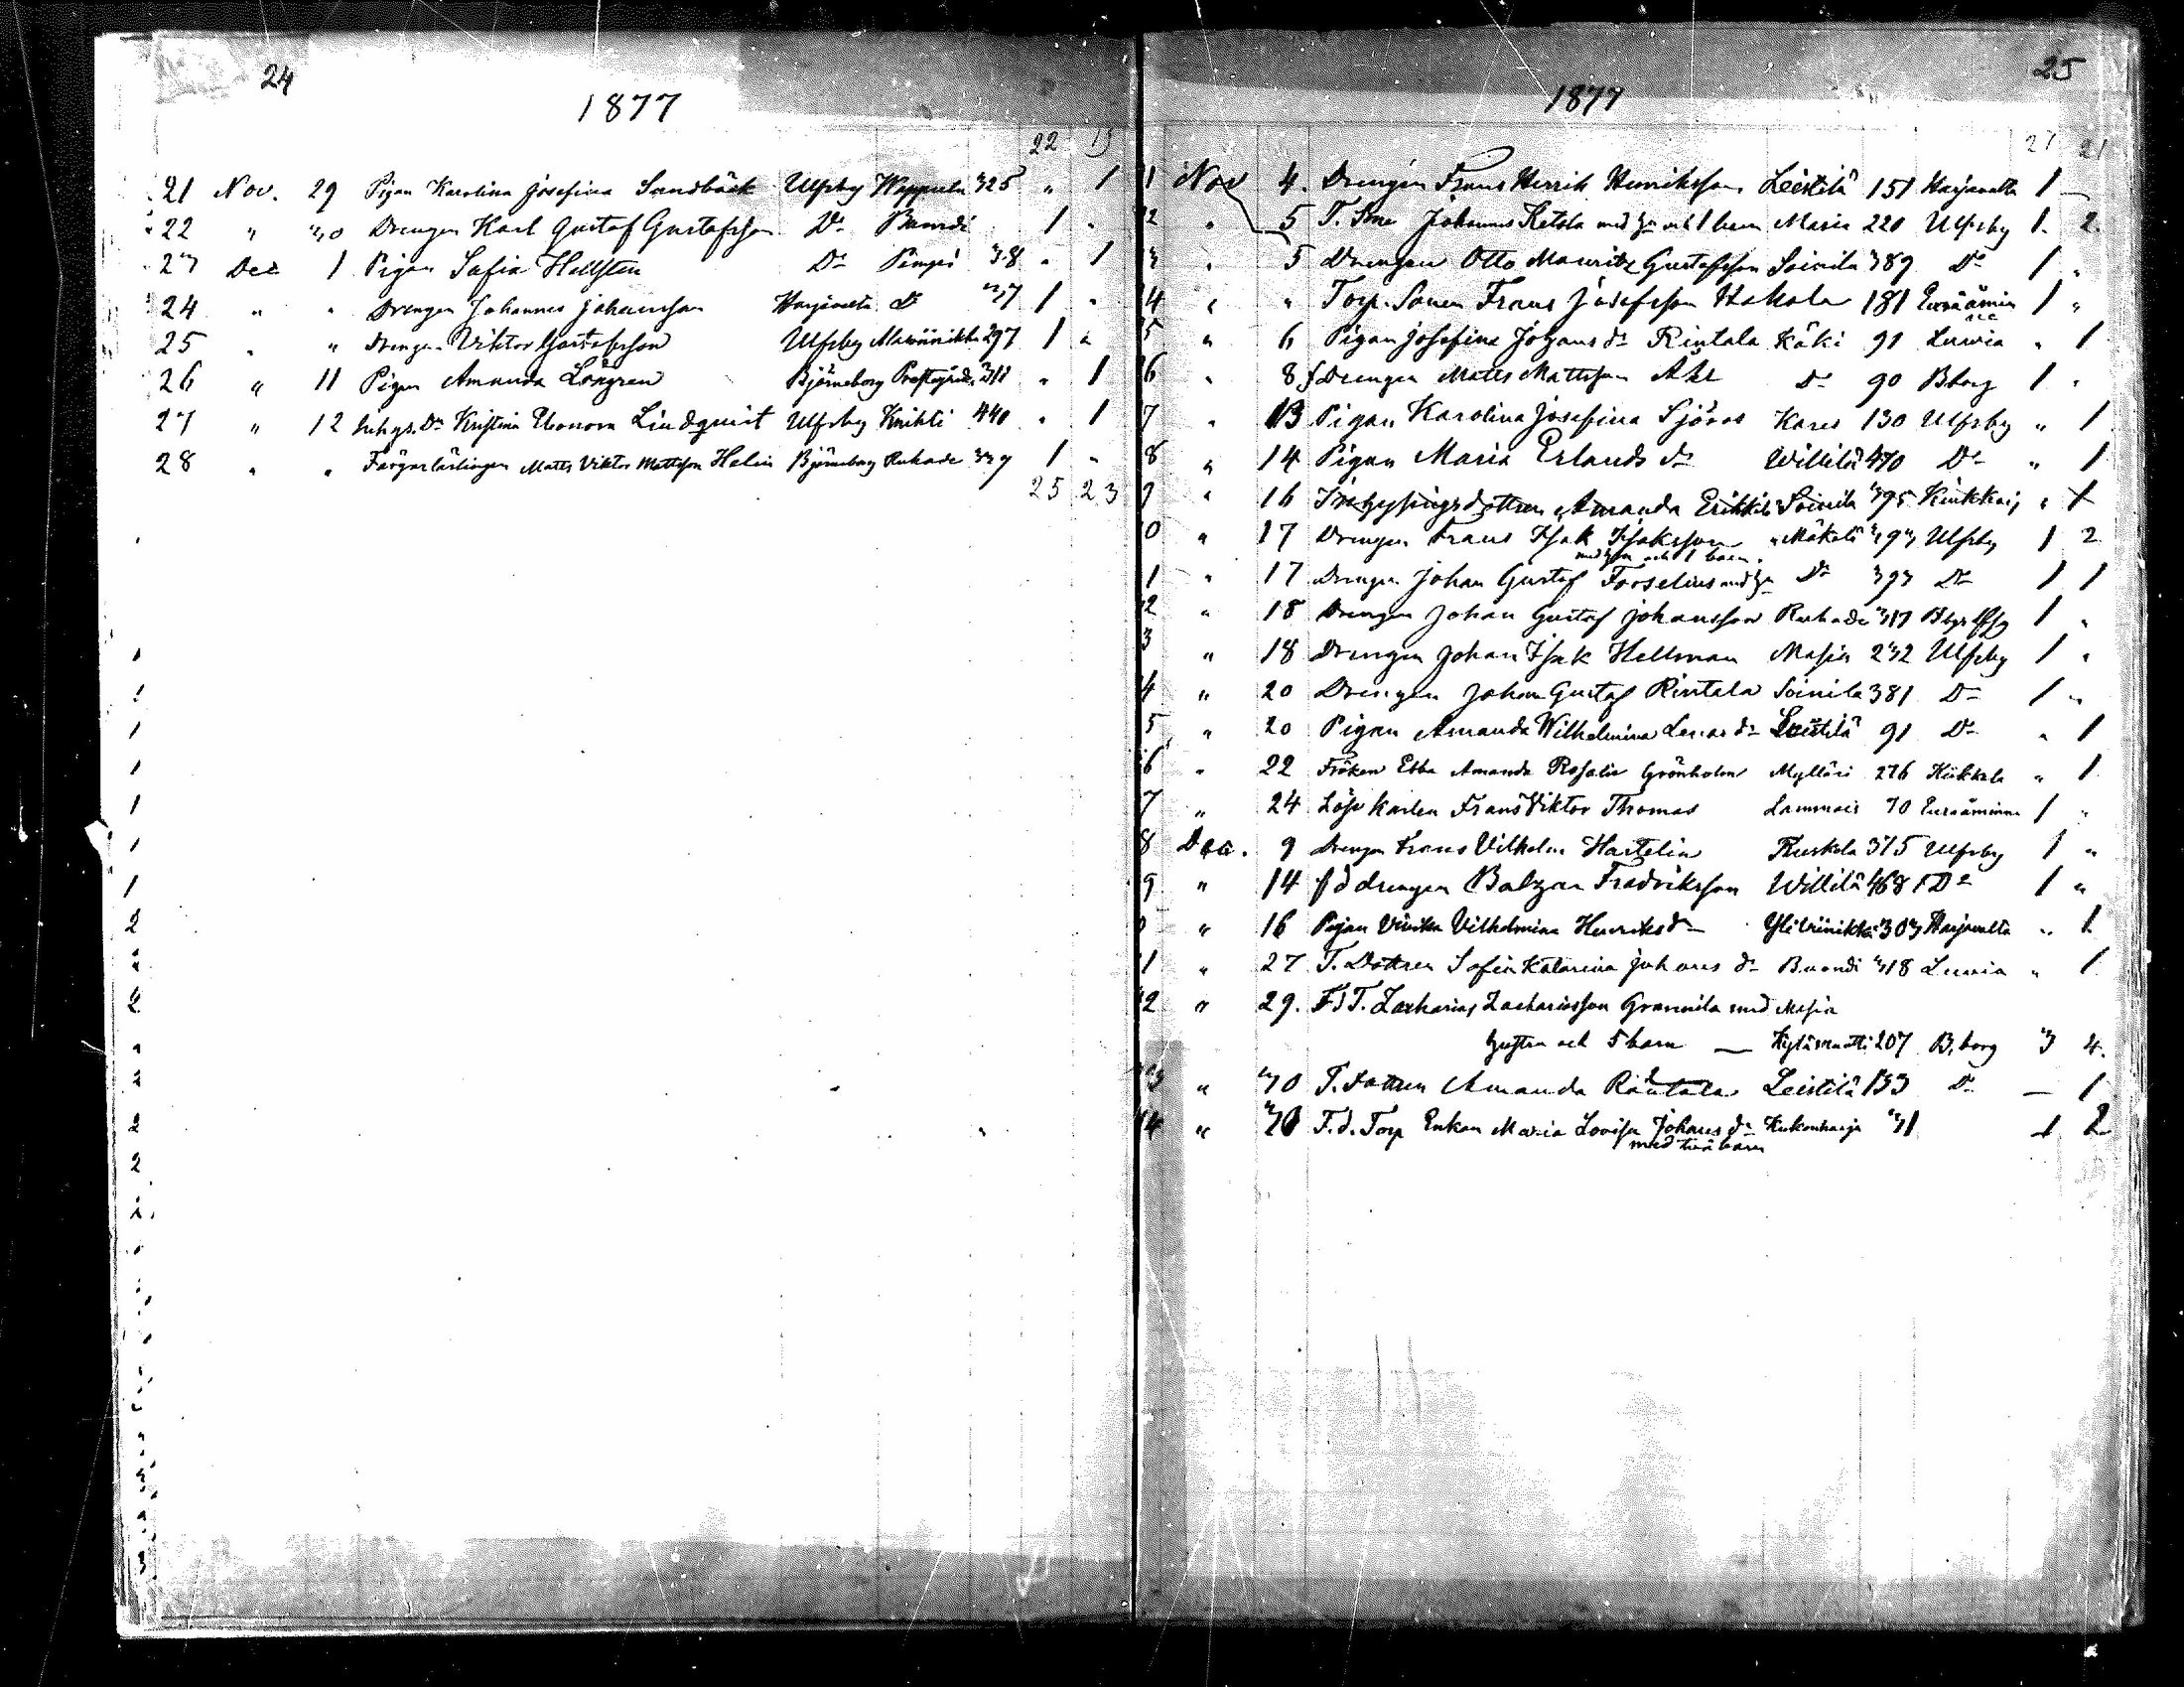 24
1877
22 19
21 Nov. 29 Pigan Karolina Josefina Sandbäck Ulfsby Wappula 325 " 1
22 " 30 Drengen Karl Gustaf Gustafsson Do Buondi 1 "
23 Dec 1 Pigan Safia Hellsten Do Pempi 38 " 1
24 " " Drengen Johannes Johansson Harjavalta Do 37 1 "
25 " " Drengen Viktor Gustafsson Ulfsby 297 1 "
26 " 11 Pigan Amanda Löngren Björneborg 311 " 1
27 " 12 Inhys. Dr Kristina Eleonora Lindqvist Ulfsby Knihti 440 " 1
28 " " Färgarlärlingen Matts Viktor Mattsson Helin Björneborg Ruhade 1 "
25 23
25
1877
27 21
1 Nov 4. Drengen Frans Henrik Henriksson Leistilä 151 Harjavalta 1 —
2 " 5 T. Sone Johannes Ketola med hu och 1 barn Maria 220 Ulfsby 1. 2.
3 " 5 Drengen Otto Mauritz Gustafsson Soinila 389 Do 1 "
4 " " Torp. Sonen Frans Josefsson Uskola 181 Euraåmin ne 1 "
5 " 6 Pigan Josefina Johans dr Rintala Käki 91 Luvia " 1
6 " 8 Drengen Matts Mattsson Ake Do 90 Bborg 1 "
7 " 13 Pigan Karolina Josefina Sjöros Kares 130 Ulfsby " 1
8 " 14 Pigan Maria Erlands dr Willilä 470 Do " 1
9 " 16 Inhysingsdottren Amanda Erikkilä Soinila 395 Kiukkais " 1
0 " 17 Drengen Frans Isak Isaksson Mäkelä 393 Ulfsby 1 2
med hu och 1 barn.
1 " 17 Drengen Johan Gustaf Forselius med hu Do 393 Do 1 1
2 " 18 Drengen Johan Gustaf Johansson Ruhade 317 1 "
3 " 18 Drengen Johan Isak Hellman Masia 232 Ulfsby 1 "
4 " 20 Drengen Johan Gustaf Rintala Soinila 381 Do 1 "
5 " 20 Pigan Amanda Wilhelmina Lenas dr Leistilä 91 Do " 1
6 " 22 Fröken Ebba Amanda Rosalie Grönholm Mylläri 276 Kiikkala " 1
7 " 24 Lösk karlen Frans Viktor Thomas Lammais 70 Euraåminne 1 "
8 Dec. 9 Drengen Frans Vilhelm Hartelin Ruskela 375 Ulfsby 1 "
9 " 14 f d drengen Balzar Fredriksson Willilä 468 Do 1 "
0 " 16 Pigan Vilhelmina Henriksdr Yliviinikka 303 Harjavalta " 1
1 " 27 T. Dottren Sofia Katarina Johans dr Buondi 318 Luvia " 1
2 " 29. Fd T. Zacharias Zachariasson Grannila med Masia
hustru och 5 barn — Kylänmatti 207 B,borg 3 4.
3 " 30 T. Dottren Amanda Rantala Leistilä 133 Do — 1
4 " 30 F.d. Torp Enkan Maria Lovisa Johans dr Kukonharja 31 1 2
med två barn